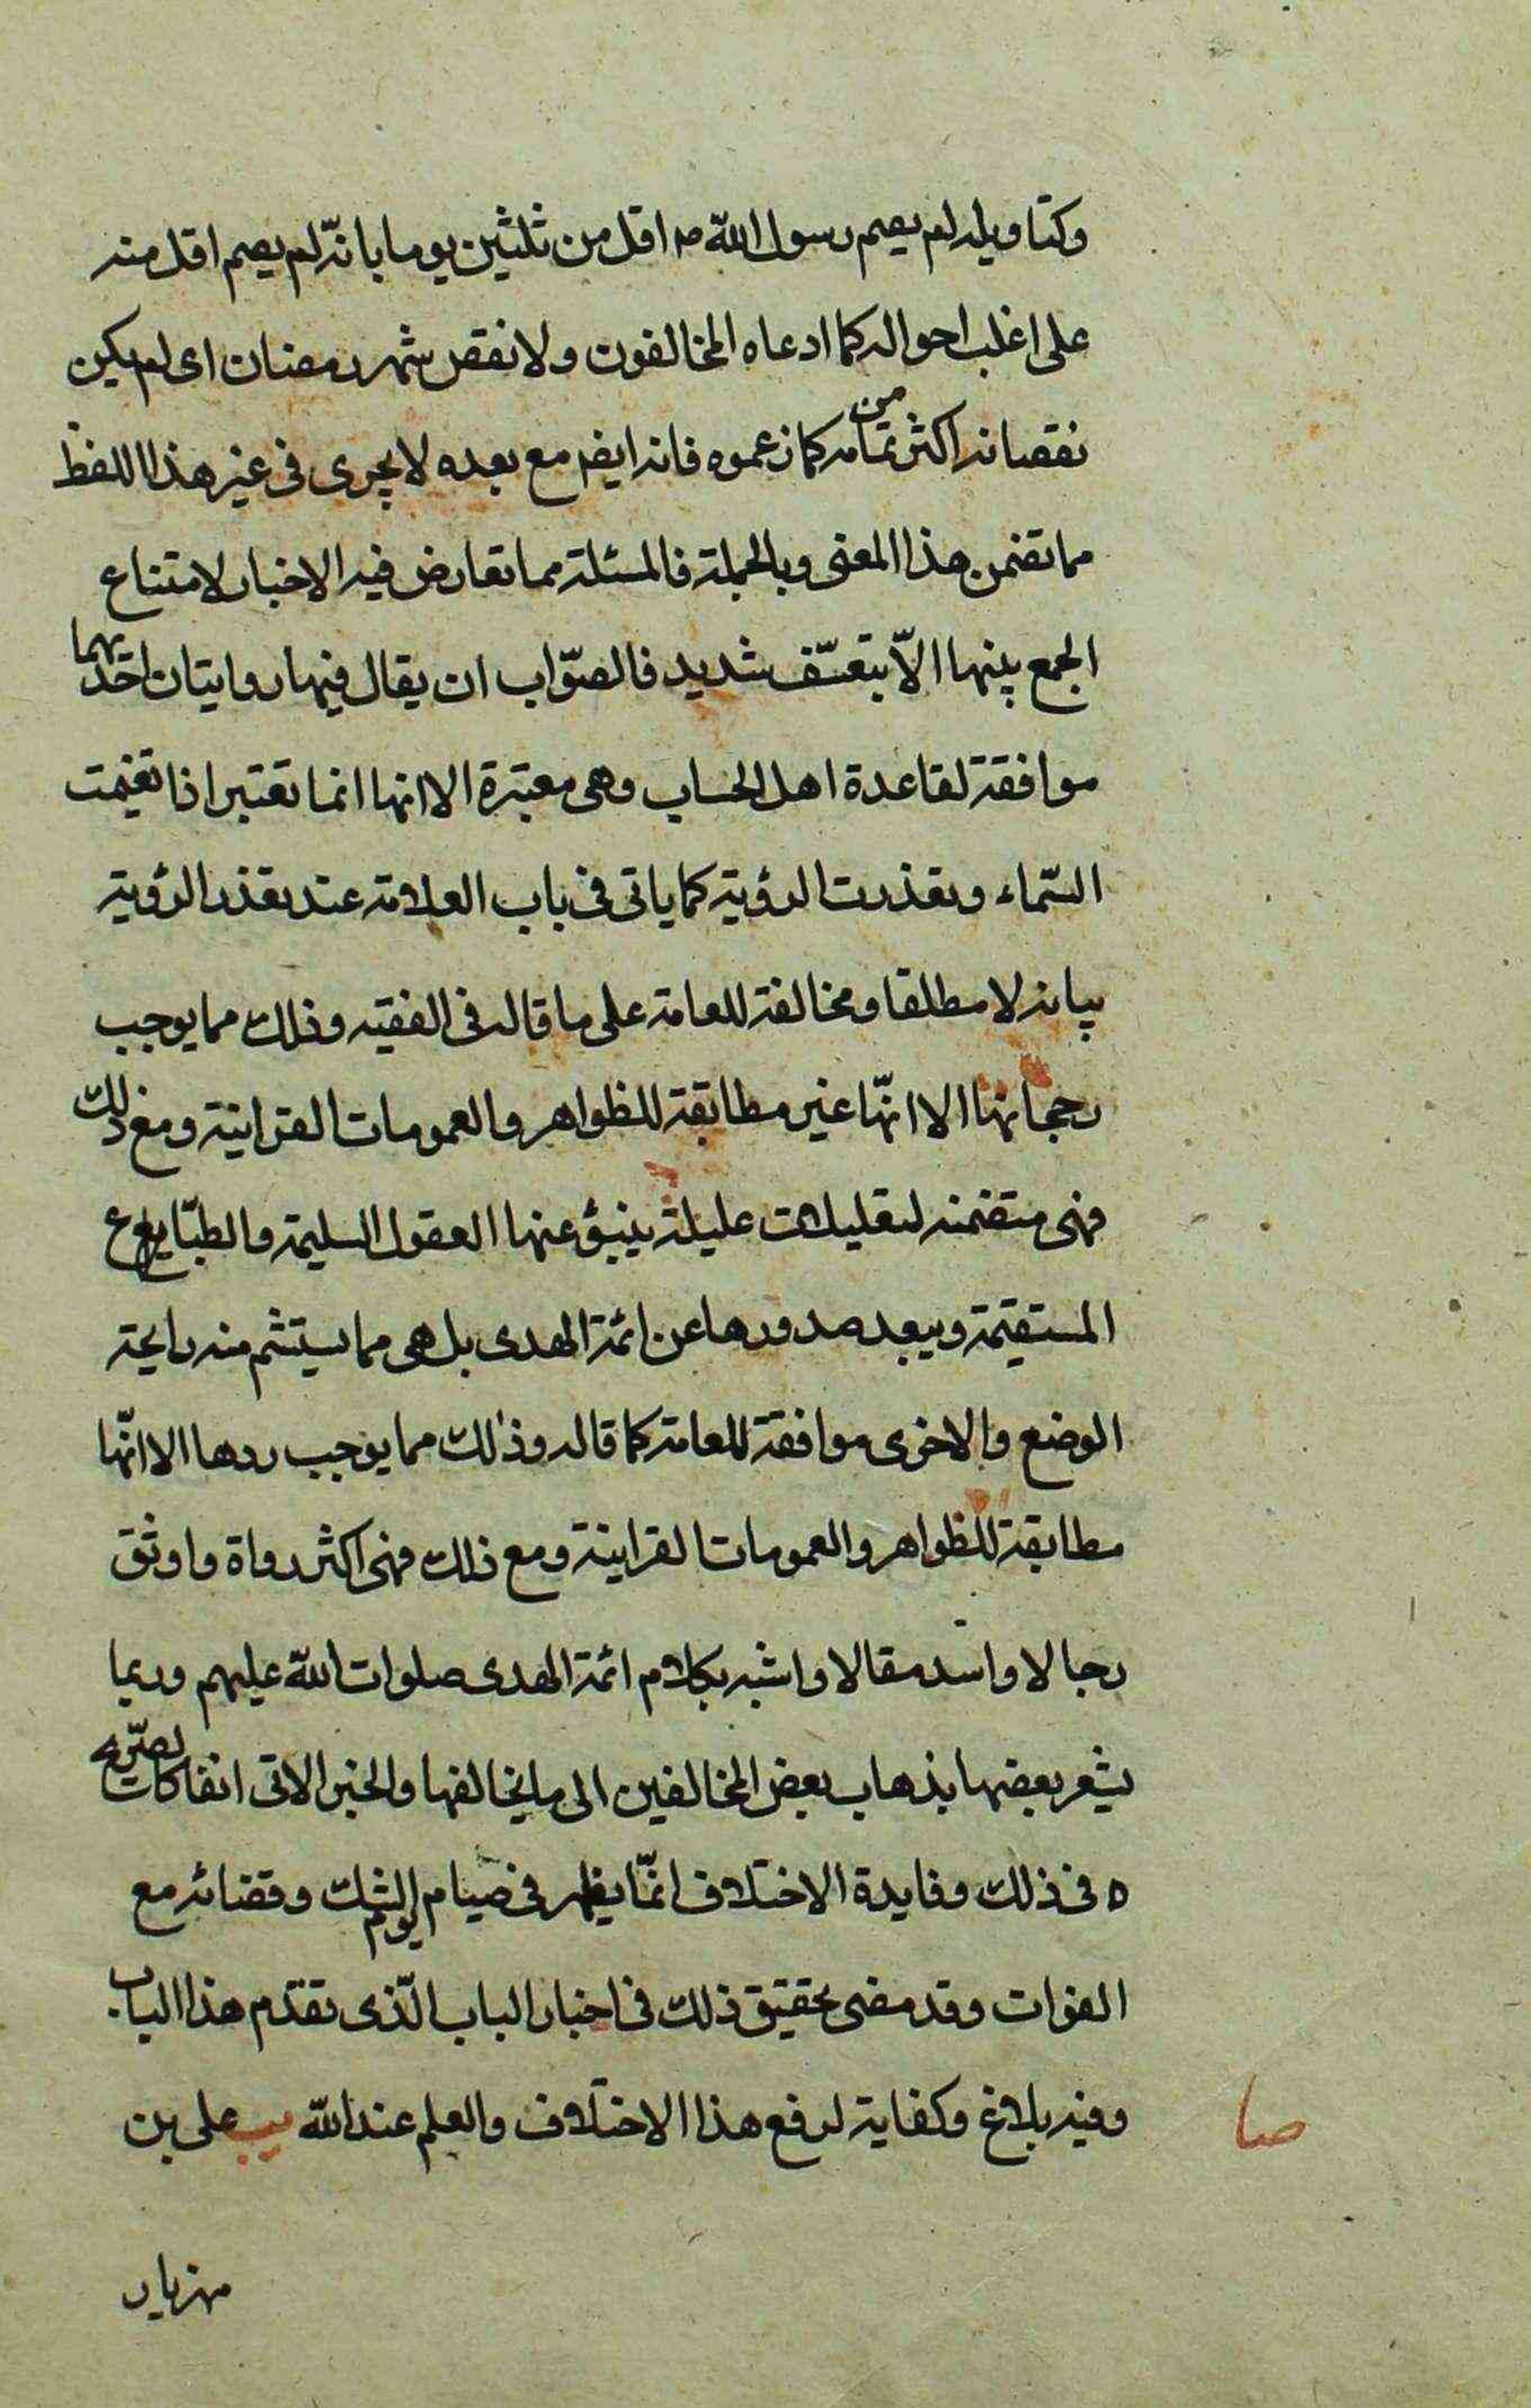 وكتاويله لم يصم رسول الله ص اقل من ثلثين يوما بانّه لم يصم اقل منه
على اغلب احواله كما ادعاه المخالفون ولا نقص شهر رمضان اى لم يكن
نقصانه اكثر من تمامه كما زعموه فانه ايضم مع بعده لا يجرى فى غير هذا اللفظ
مما تضمن هذا المعنى وبالجملة فالمسئلة مما تعارض فيه الاخبار لامتناع
الجمع بينها الاّ بتعسّف شديد فالصّواب ان يقال فيها روايتان احديهما
موافقة لقاعدة اهل الحساب وهى معتبرة الا انها انما تعتبر اذا تغيمت
السّماء وتعذرت الرؤية كما ياتى فى باب العلامة عند تعذر الرؤية
بيانه لا مطلقا ومخالفة للعامة على ما قاله فى الفقيه وذلك مما يوجب
رجحانها الا انّها غير مطابقة للظواهر والعمومات القرانية ومع ذلك
فهى متضمنه لتعليلات عليلة ينبؤ عنها العقول السليمة والطبّايع
المستقيمة ويبعد صدورها عن ائمة الهدى بل هى مما يستشم منه رايحة
الوضع والاخرى موافقة للعامة كما قاله وذلك مما يوجب ردها الا انّها
مطابقة للظواهر والعمومات القرانية ومع ذلك فهى اكثر رواة واوثق
رجالا واسّد مقالا واشبه بكلام ائمة الهدى صلوات الله عليهم وربما
يشعر بعضها بذهاب بعض المخالفين الى ما يخالفها والخبر الاتى انفا كات تصّريح
ه فى ذلك وفايدة الاختلاف انمّا يظهر فى صيام اليوم الشك وقضائه مع
الفوات وقد مضى تحقيق ذلك فى اخبار الباب الّذى تقدّم هذا الباب
وفيه بلاغ وكفاية لرفع هذا الاختلاف والعلم عند الله يب على بن
صا
مهزيار